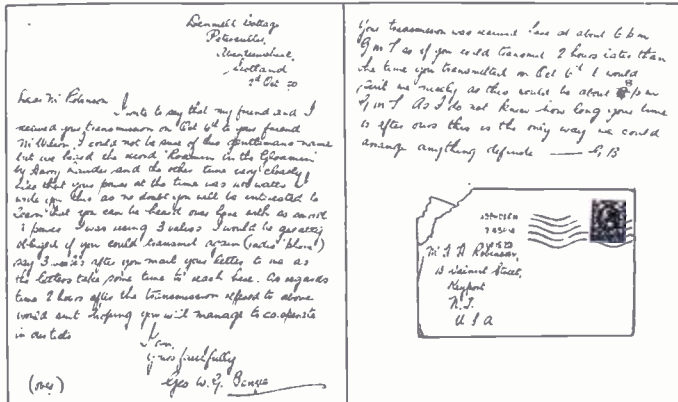 Bennett Cottage
Peterculter,
Aberdeenshire,
Scotland
Oct 20
Dear Mr Robinson
I write to say that my friend and I
received your transmission on Oct 6th to your friend
Mr Wilson I could not be sure of this gentlemans name
but we heard the record "Roamin in the Gloamin
by Harry Lauder and the other time very clearly
that your power at the time was watts
write you this as no doubt you will be interested to
learn that you can be heard over here with so small
a power I was using 3 valves I would be greatly
obliged if you could transmit again (radio phone)
say 3 weeks after you mail your letter to me as
the letters take some time to reach here. As regards
time 2 hours after the transmission referred to above
would suit hoping you will manage to co.operate
in our tests
I am
yours faithfully
Geo W. G.
(over)
Your transmission was received here at about 6 am
G m T so if you could transmit 2 hours later than
the time you transmitted on Oct 6th I would
suit me nicely as this would be about
G m T As I do not know how long your time
is after ours this is the only way we could
arrange anything definite — G, B
Mr F A Robinson,
13 Street,
Keyport
N. J.
U S A